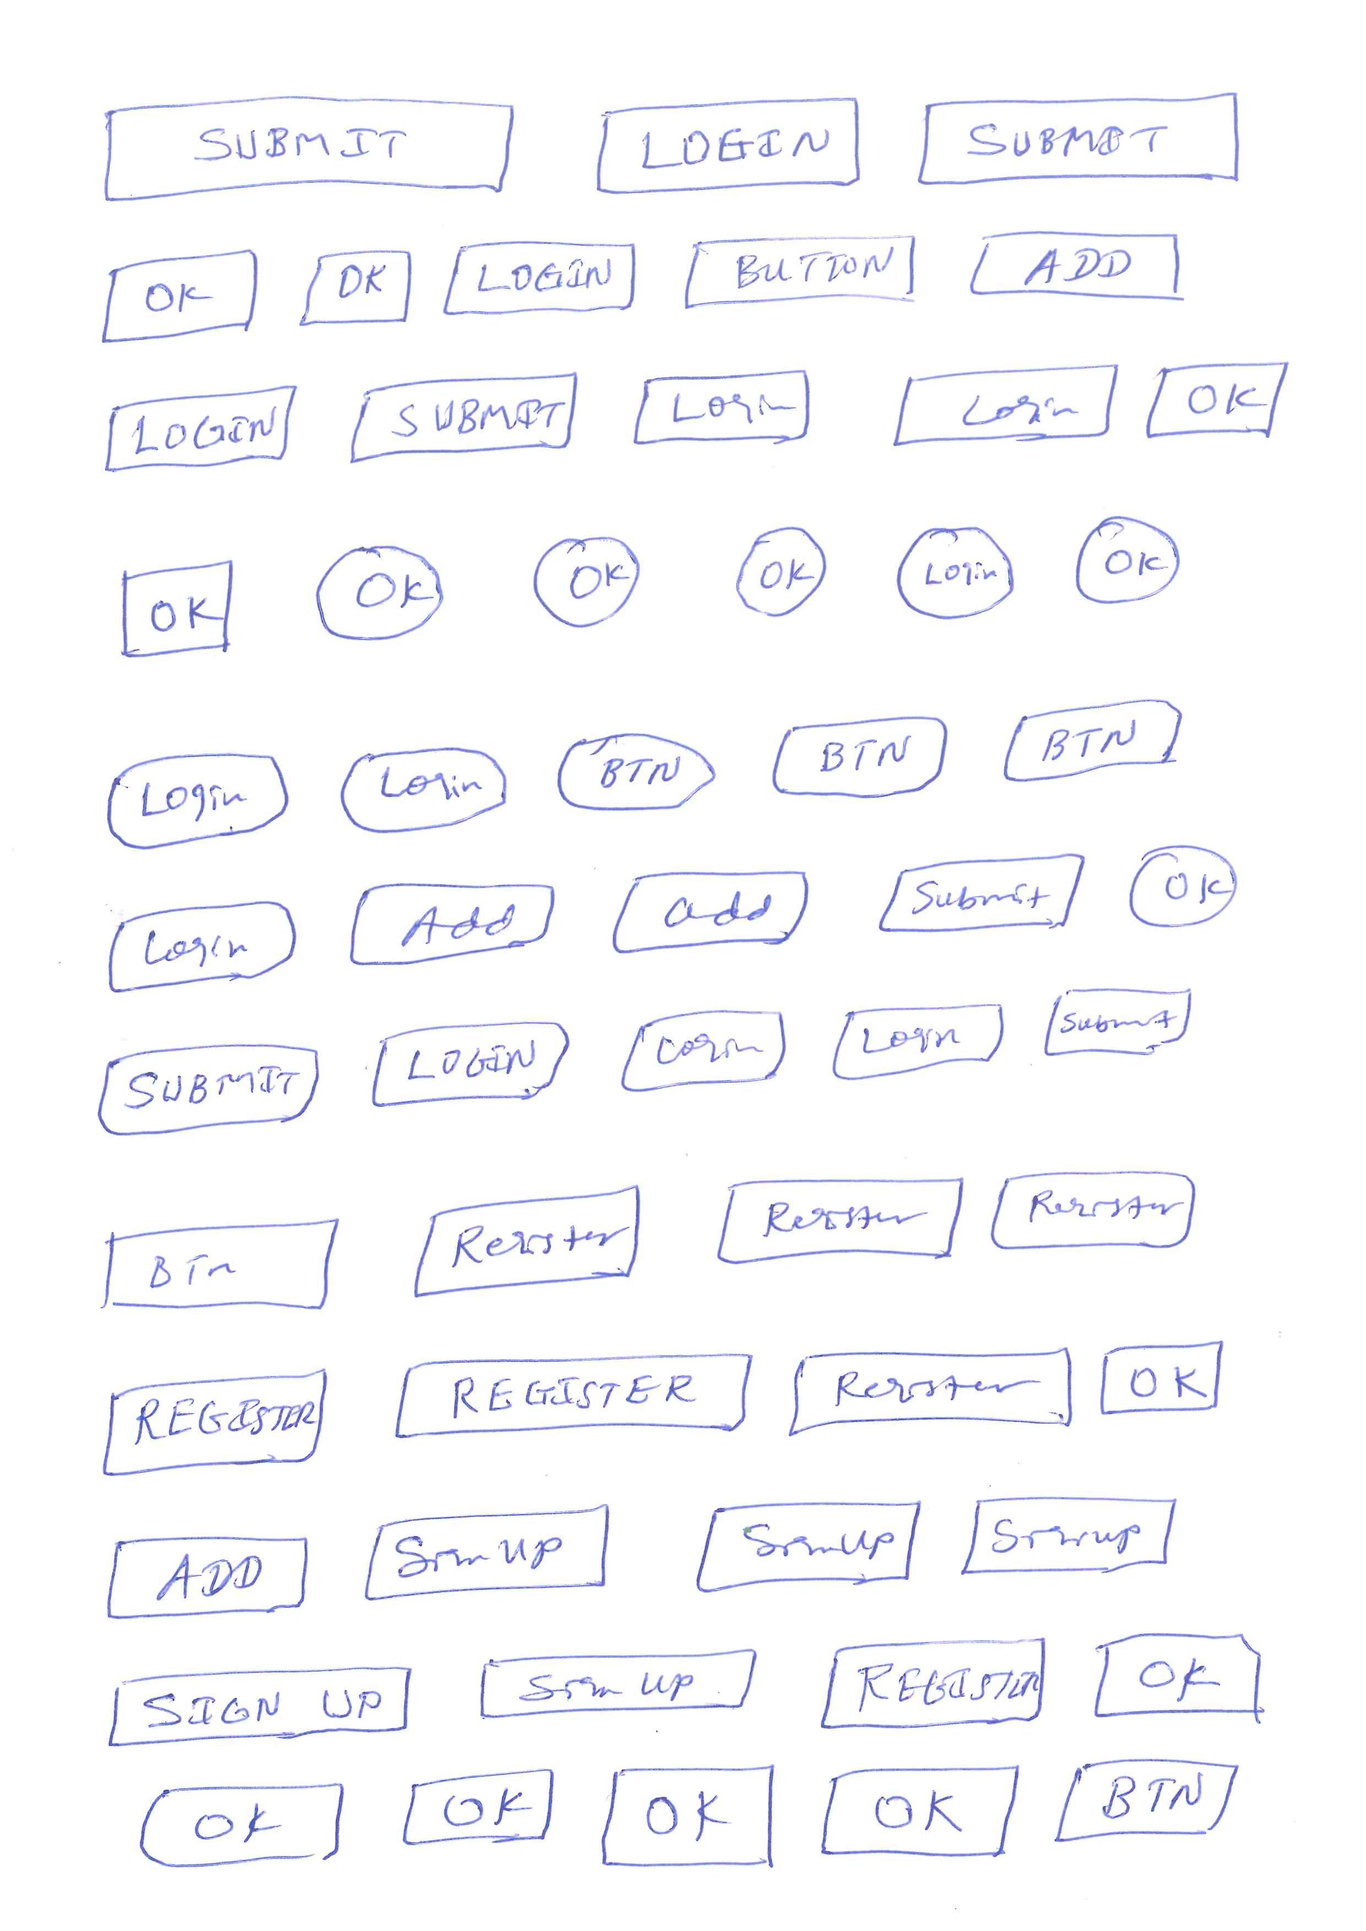 SUBMIT LOGIN SUBMIT
OK OK LOGIN BUTTON ADD
LOGIN SUBMIT Login Login OK
OK OK OK OK Login OK
Login Login BTN BTN BTN
Login Add add Submit OK
SUBMIT LOGIN Login Login Submit
BTn Register Register Register
REGISTER REGISTER Register OK
ADD Sign UP Sign Up Sign up
SIGN UP Sign Up REGISTER OK
OK OK OK OK BTN